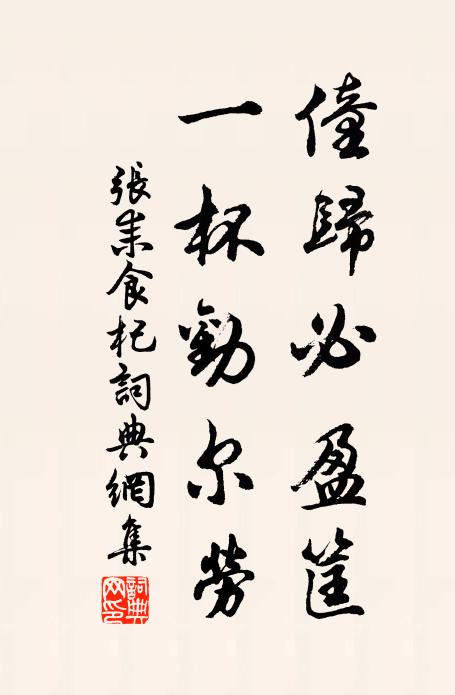 僮歸必盈筐
一杯勸尔勞
張耒食杞詞典網集
詞典網印